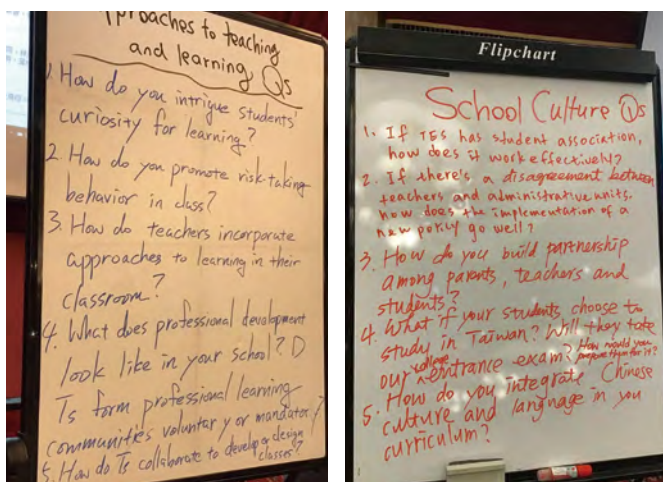 pproaches to teaching
and learning Qs
1. How do you intrigue students'
curiosity for learning?
2. How do you promote risk-taking
behavior in class?
3. How do teachers incorporate
approaches to learning in their
classroom?
4. What does professional development
look like in your school?
Ts form professional learning
communities voluntary or mandatory?
5. How do Ts collaborate to develop or design
classes?
Flipchart
School Culture Qs
1. If TES has student association,
how does it work effectively?
2. If there's a disagreement between
teachers and administrative units,
how does the implementation of a
new policy go well?
3. How do you build partnership
among parents, teachers and
students?
4. What if your students choose to
study in Taiwan? Will they take
our college entrance exam? How would you
prepare them for it?
5. How do you integrate Chinese
culture and language in you
curriculum?